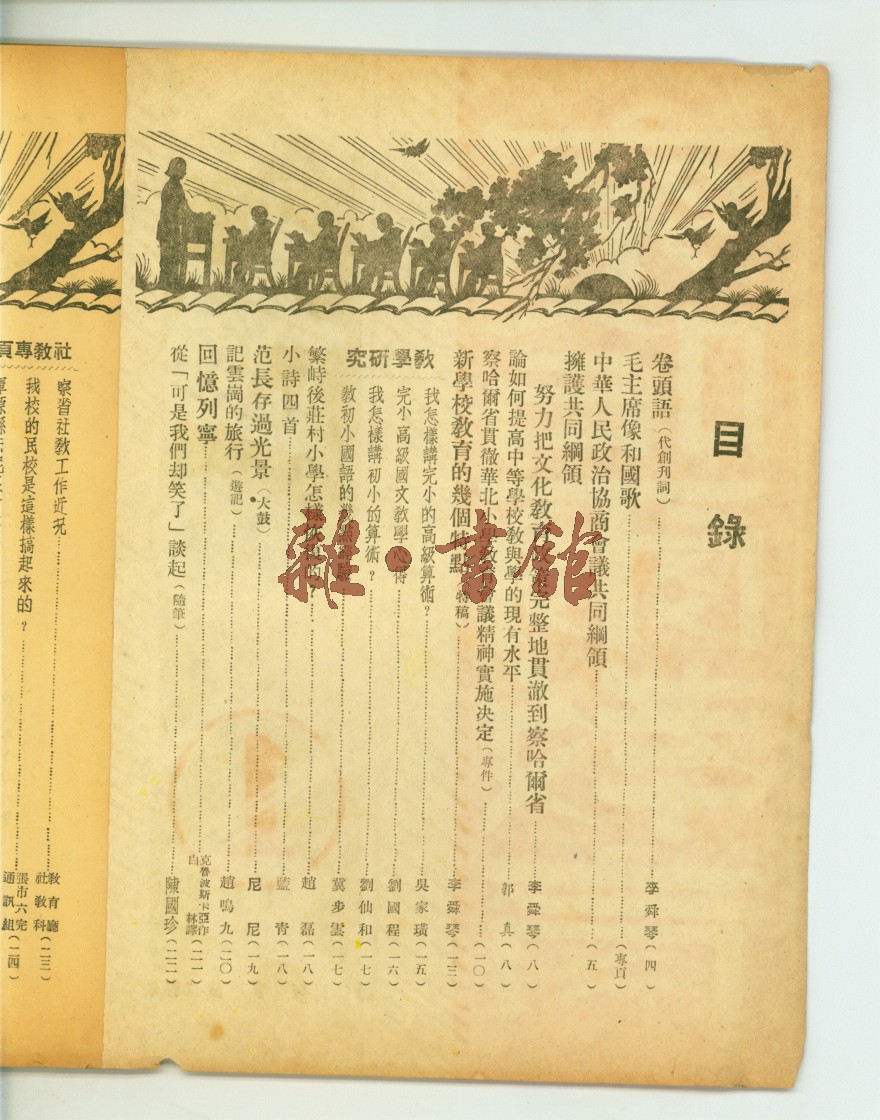 目錄
卷頭語（代創刊詞）……李舜琴（四）
毛主席像和國歌……（專頁）
中華人民政治協商會議共同綱領……（五）
擁護共同綱領
努力把文化教育政策完整地貫澈到察哈爾省……李舜琴（八）
論如何提高中等學校教與學的現有水平……郭真（八）
察哈爾省貫徹華北小學教育會議精神實施決定（專件）……（一〇）
新學校教育的幾個特點（特稿）……李舜琴（一三）
教學研究
我怎樣講完小的高級算術？……吳家璜（一五）
完小高級國文教學心得……劉國程（一六）
我怎樣講初小的算術？……劉仙和（一七）
教初小國語的幾點經驗……冀步雲（一七）
繁峙後莊村小學怎樣……的？……趙磊（一八）
小詩四首……藍青（一八）
范長存過光景（大鼓）……尼尼（一九）
記雲崗的旅行（遊記）……趙鳴九（二〇）
回憶列寧……克魯波斯卡亞作 白林譯（二一）
從「可是我們却笑了」談起（隨筆）……陳國珍（二二）
社教專頁
察省社教工作近況……教育廳社教科（二三）
我校的民校是這樣搞起來的？……張市六完通訊組（二四）
雜·書館